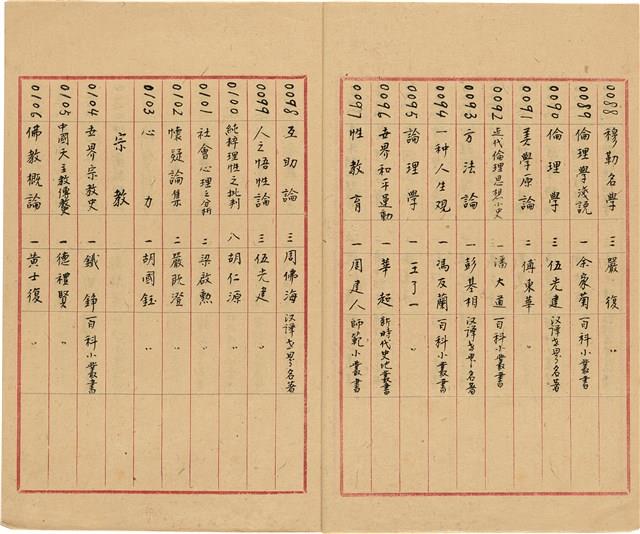 0088 穆勒名學 三 嚴復 〃
0089 倫理學淺說 一 余家菊 百科小叢書
0090 倫理學 三 伍光建 汉譯世界名著
0091 美學原論 二 傅東華 〃
0092 近代倫理思想小史 一 潘大道 百科小叢書
0093 方法論 一 彭基相 汉譯世界名著
0094 一种人生观 一 馮友蘭 百科小叢書
0095 論理學 一 王了一 〃
0096 世界和平運動 一 華超 新時代史地叢書
0097 性教育 一 周建人 師範小叢書
0098 互助論 三 周佛海 汉譯世界名著
0099 人之悟性論 三 伍光建 〃
0100 純粹理性之批判 八 胡仁源 〃
0101 社會心理之分析 二 梁啟勳 〃
0102 懷疑論集 二 嚴既澄 〃
0103 心力 一 胡國鈺 〃
宗教
0104 世界宗教史 一 鐵錚 百科小叢書
0105 中國天主教傳教史 一 德禮賢 〃
0106 佛教概論 一 黄士復 〃